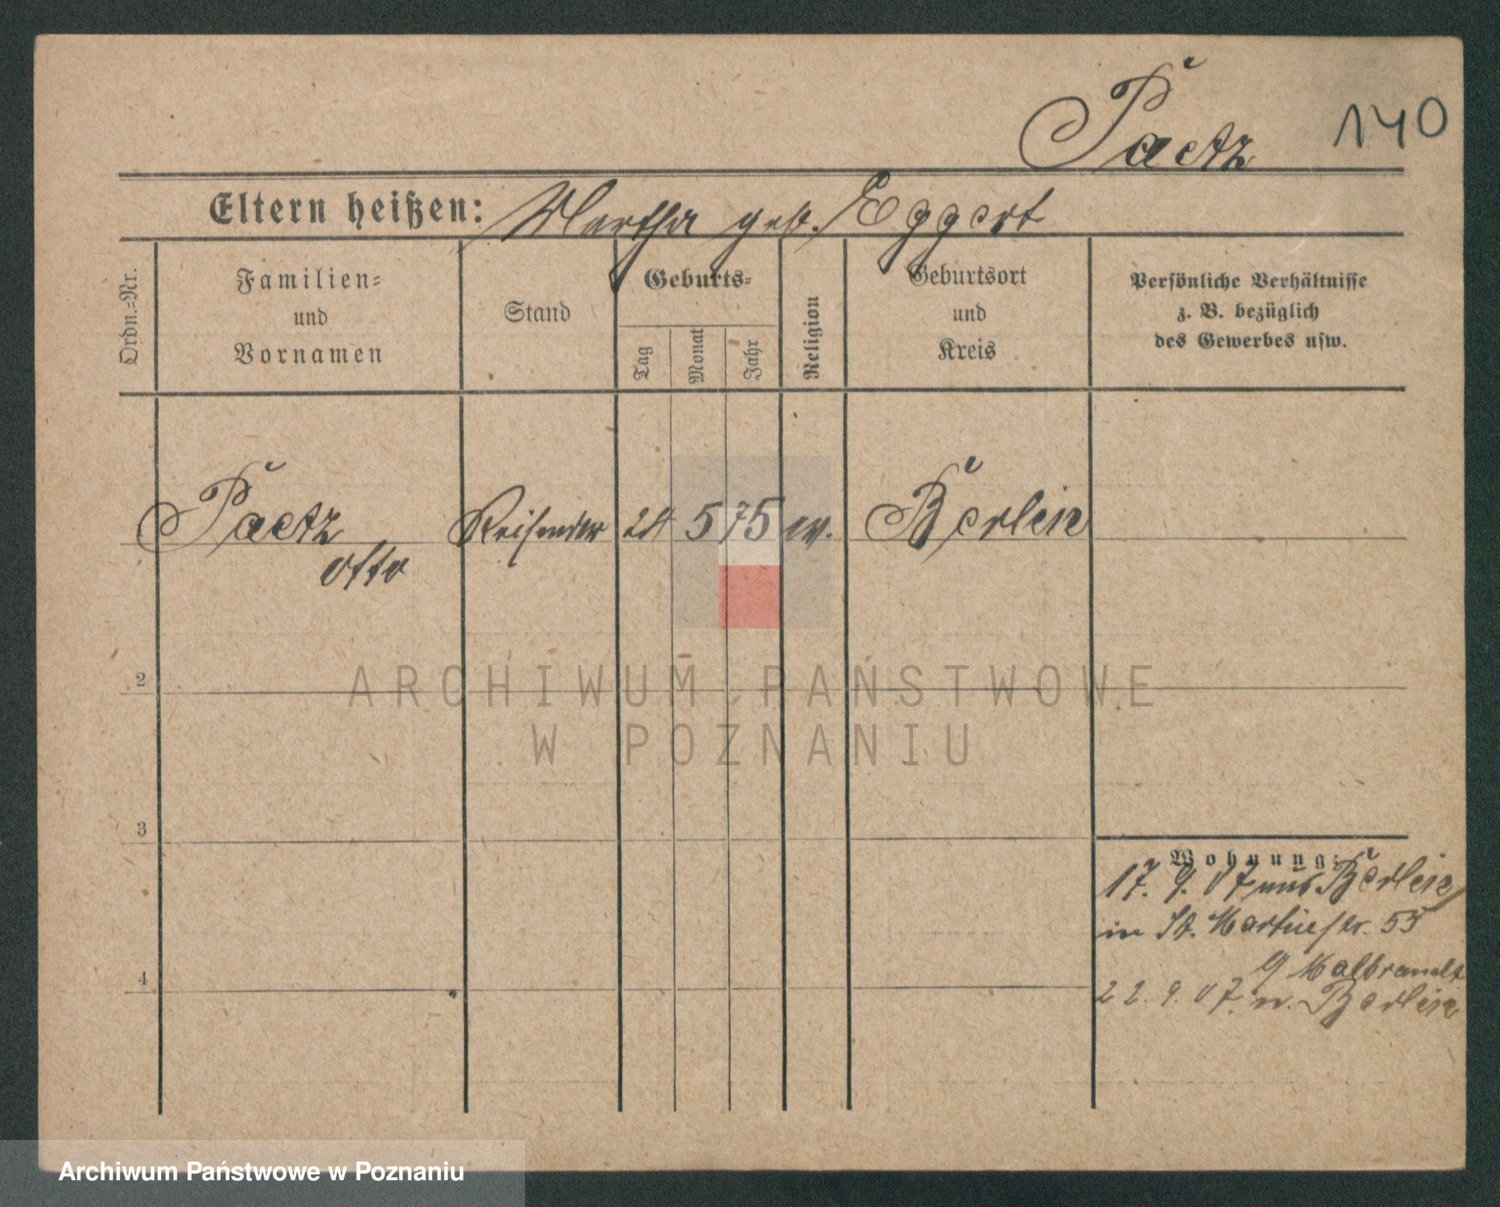 Paetz
140
Eltern heißen: Martha geb. Eggert
Ordn.=Nr.
Familien=
und
Vornamen
Stand
Geburts=
Tag
Monat
Jahr
Religion
Geburtsort
und
Kreis
Persönliche Verhältnisse
z. B. bezüglich
des Gewerbes usw.
Paetz Reisender 24 5 75 ev. Berlin
Otto
2
3
4
Wohnung:
17. 9. 07 aus Berlin
in St. Martinstr. 55
Malbrandt
22. 9. 07 n. Berlin
ARCHIWUM PAŃSTWOWE
W POZNANIU
Archiwum Państwowe w Poznaniu